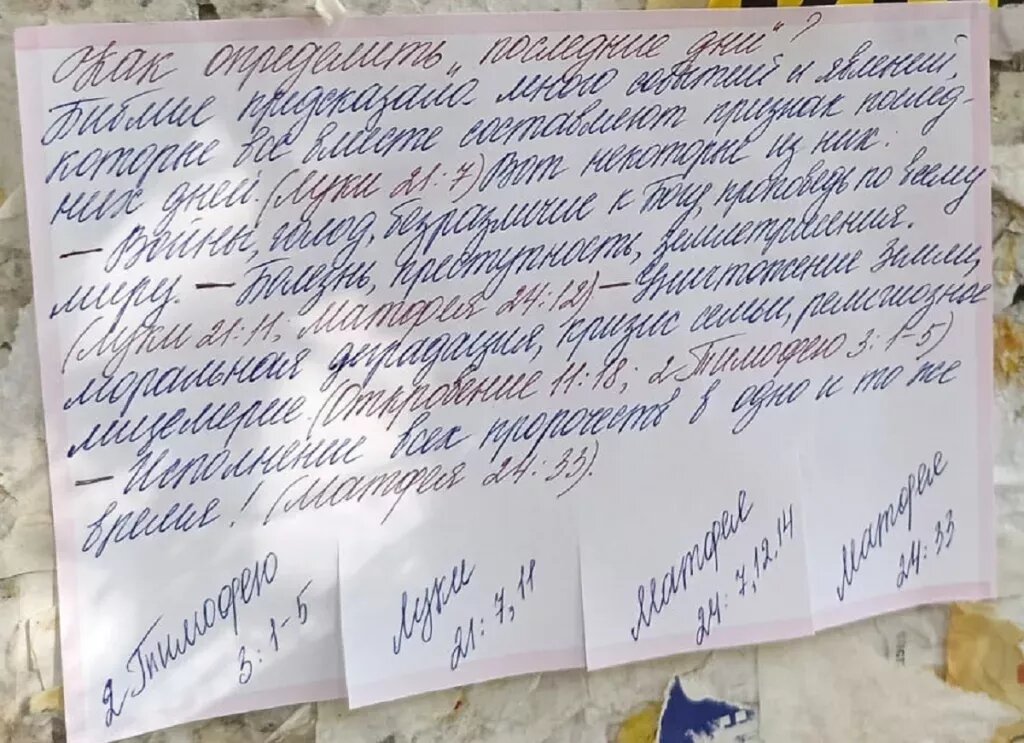 Как определить „последние дни"?
Библия предсказала много событий и явлений,
которые все вместе составляют признак послед-
них дней. (Луки 21:7) Вот некоторые из них:
— Войны, голод, безразличие к Богу, проповедь по всему
миру. — Болезнь, преступность, землетрясения.
(Луки 21:11; Матфея 24:12). — Уничтожение Земли,
моральная деградация, кризис семьи, религиозное
лицемерие. (Откровение 11:18; 2 Тимофею 3:1-5)
— Исполнение всех пророчеств в одно и то же
время! (Матфея 24:33).
2 Тимофею
3:1-5
Луки
21:7,11
Матфея
24:7,12.14
Матфея
24:33